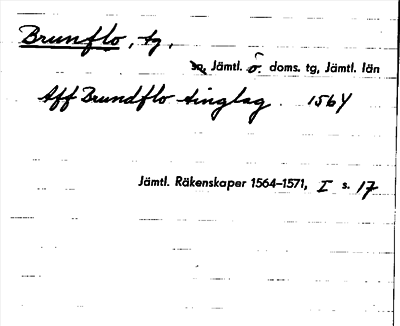 Brunflo, tg,
sn, Jämtl. ö. doms. tg, Jämtl. län
Aff Brundflo tinglag. 1564
Jämtl. Räkenskaper 1564–1571, I s. 17